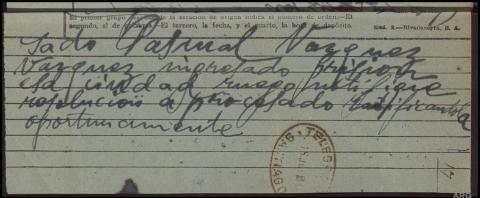 El primer grupo de la estación de origen indica el número de orden.—El
segundo, el de palabras.—El tercero, la fecha, y el cuarto, la hora de depósito.
Rivadeneyra, S. A.
sado Pascual Vazquez
Vazquez ingresado prision
esa ciudad ruego notifique
resolucion a procesado ratificandola
oportunamente
TELEGR
SANTIAGO
ARG